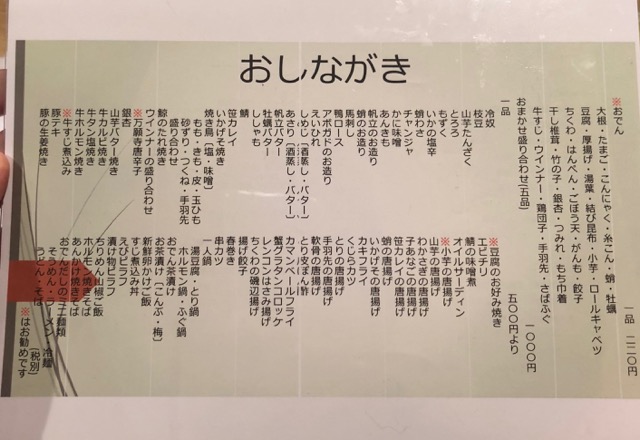 おしながき
※おでん 一品 二二〇円
大根・たまご・こんにゃく・糸こん・蛸・牡蠣
豆腐・厚揚げ・湯葉・結び昆布・小芋・ロールキャベツ
ちくわ・はんぺん・ごぼう天・がんも・餃子
干し椎茸・竹の子・銀杏・つみれ・もち巾着
牛すじ・ウインナー・鶏団子・手羽先・さばふぐ
おまかせ盛り合わせ(五品) 一〇〇〇円
一品 五〇〇円より
冷奴
枝豆
山芋たんざく
とろろ
もずく
いかの塩辛
蛸わさ
チャンジャ
かに味噌
あんきも
帆立のお造り
蛸のお造り
馬刺し
鴨ロース
アボガドのお造り
えいひれ
しめじ(酒蒸し・バター)
あさり(酒蒸し・バター)
帆立バター
牡蠣バター
ししゃも
鯖
笹カレイ
いかげそ焼き
焼き鳥(塩・味噌)
もも・きも・皮・玉ひも
砂ずり・つくね・手羽先
盛り合わせ
鯨のたれ焼き
ウインナーの盛り合わせ
※万願寺唐辛子
銀杏
山芋バター焼き
牛カルビ焼き
牛タン塩焼き
牛ホルモン焼き
※牛すじ煮込み
豚テキ
豚の生姜焼き
※豆腐のお好み焼き
エビチリ
鯖の味噌煮
オイルサーディン
※小芋の唐揚げ
山芋の唐揚げ
わかさぎの唐揚げ
子あなごの唐揚げ
笹カレイの唐揚げ
いかげその唐揚げ
カキフライ
くじらカツ
とりの唐揚げ
手羽先の唐揚げ
軟骨の唐揚げ
とり皮ぽん酢
カマンベールフライ
蟹グラタンコロッケ
レンコンはさみ揚げ
ちくわの磯辺揚げ
揚げ餃子
春巻き
串カツ
一人鍋
湯豆腐・とり鍋
ホルモン鍋・ふぐ鍋
おでん茶漬け
お茶漬け(こんぶ・梅)
新鮮卵かけご飯
すじ煮込み丼
えびピラフ
漬け物ピラフ
ちりめん山椒ご飯
ホルモン焼きそば
あんかけ焼きそば
おでんだしのミニ麺類
そうめん・ラーメン・冷麺
うどん・そば (税別)
※はお勧めです